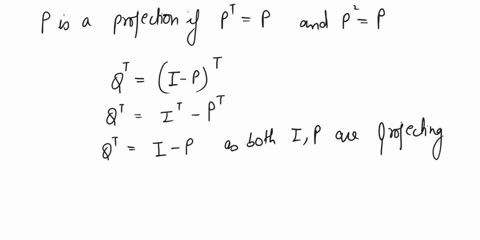 P is a projection if Pᵀ = P and P² = P
Qᵀ = (I-P)ᵀ
Qᵀ = Iᵀ - Pᵀ
Qᵀ = I - P as both I, P are Projecting